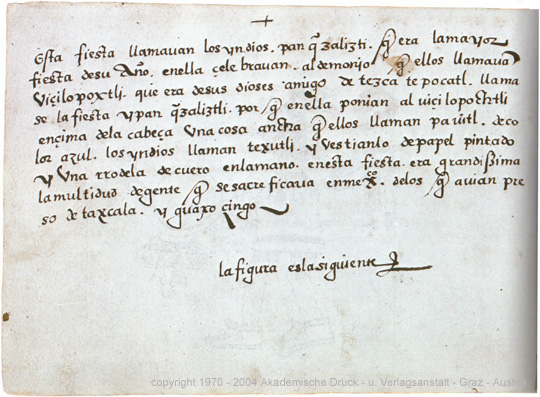 +
Esta fiesta llamavan los yndios. pan q̃zalizti. q̃ era la mayor
fiesta de su Año. en ella çele bravan. al demonio q̃ ellos llamava
Viçilopoxtli. que era de sus dioses amigo de tezca tepocatl. llama
se la fiesta y pan q̃zaliztli. por q̃ en ella ponian al viçi lopochtli
ençima de la cabeça Una cosa ancha q̃ ellos llaman paintl. de co
lor azul. los yndios llaman texutli. y vestianlo de papel pintado
y Una rrodela de cuero en la mano. en esta fiesta. era grandissima
la multidud de gente q̃ se sacre ficava en mexº. de los q̃ avian pre
so de taxcala. y guaxo çingo
la figura es la siguiente
copyright 1970 - 2004 Akademische Druck - u. Verlagsanstalt - Graz - Austria